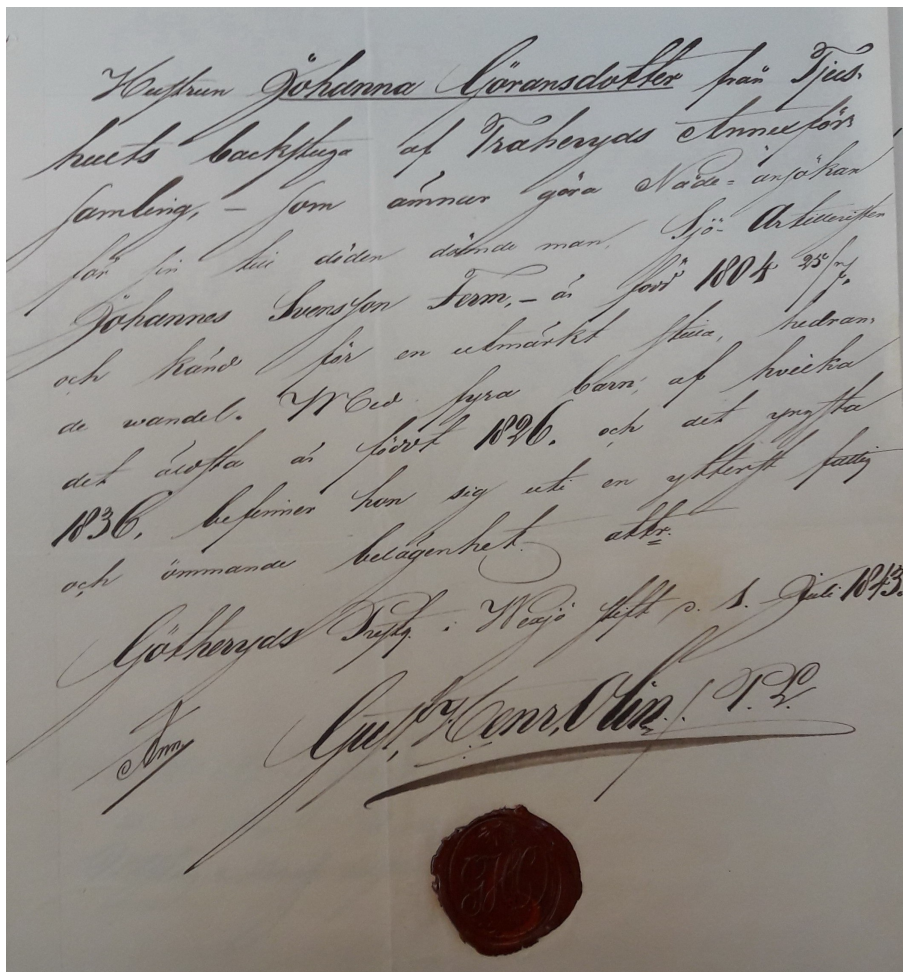 Hustrun Johanna Göransdotter från Tjus-
hults backstuga af Traheryds Annexför-
samling, – som ämnar göra Nåde-ansökan
för sin till döden dömde man, Sjö-Artilleristen
Johannes Svensson Ferm, – är född 1804 25/7.
och känd för en utmärkt stilla, hedran-
de wandel. Med fyra barn, af hvilka
det älsta är föddt 1826. och det yngsta
1836. befinner hon sig uti en ytterst fattig
och ömmande belägenhet. att:r.
Götheryds Prestg. i Wexjö stift d. 1. Juli 1843.
Gust. Henr. Olin. P. L.
Ann.
GHO